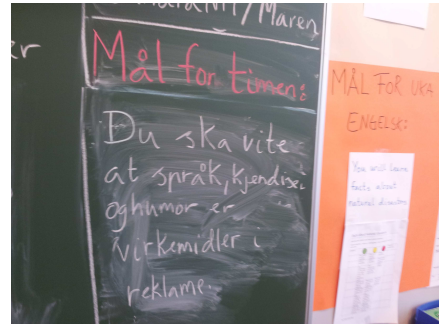 er
/Maren
Mål for timen:
Du ska vite
at språk, kjendiser
og humor er
virkemidler i
reklame.
MÅL FOR UKA
ENGELSK:
You will learn
facts about
natural disasters